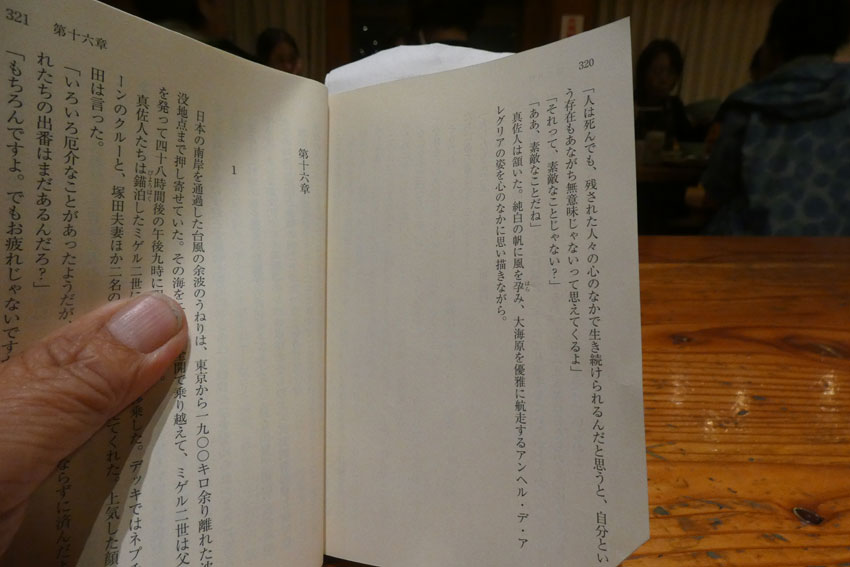 320
「人は死んでも、残された人々の心のなかで生き続けられるんだと思うと、自分とい
う存在もあながち無意味じゃないって思えてくるよ」
「それって、素敵なことじゃない？」
「ああ、素敵なことだね」
真佐人は頷いた。純白の帆に風を孕み、大海原を優雅に航走するアンヘル・デ・ア
はら
レグリアの姿を心のなかに思い描きながら。
321
第十六章
第十六章
1
日本の南岸を通過した台風の余波のうねりは、東京から一九〇〇キロ余り離れた沈
没地点まで押し寄せていた。その海を
全開で乗り越えて、ミゲル二世は父
を発って四十八時間後の午後九時に
真佐人たちは錨泊したミゲル二世に
びょうはく
乗した。デッキではネプチ
ーンのクルーと、塚田夫妻ほか二名の
てくれた。上気した顔
田は言った。
「いろいろ厄介なことがあったようだが、
ならずに済んだと
れたちの出番はまだあるんだろ？」
「もちろんですよ。でもお疲れじゃないです